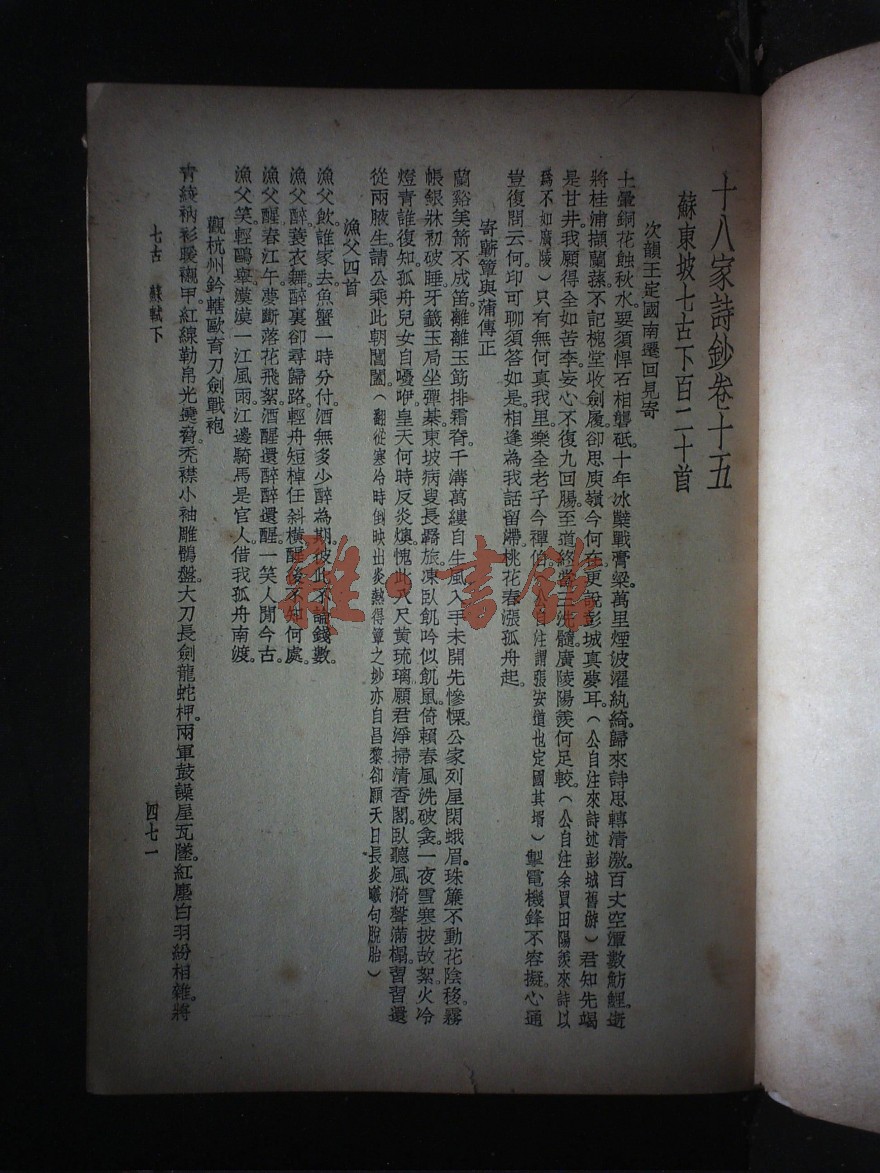 十八家詩鈔卷十五
蘇東坡七古下百二十首
次韻王定國南遷回見寄
土暈銅花蝕秋水。要須悍石相礱砥。十年冰櫱戰膏粱。萬里煙波濯紈綺。歸來詩思轉清激。百丈空潭數魴鯉。逝
將桂浦擷蘭蓀。不記槐堂收劍履。卻思庾嶺今何在。更說彭城真夢耳。（公自注來詩述彭城舊游）君知先竭
是甘井。我願得全如苦李。妄心不復九回腸。至道終當三洗髓。廣陵陽羨何足較。（公自注余買田陽羨來詩以
為不如廣陵）只有無何真我里。樂全老子今禪伯。自注謂張安道也定國其壻）掣電機鋒不容擬。心通
豈復問云何。印可聊須答如是。相逢為我話留滯。桃花春漲孤舟起。
寄蘄簟與蒲傳正
蘭谿美箭不成笛。離離玉筯排霜脊。千溝萬縷自生風。入手未開先慘慄。公家列屋閑蛾眉。珠簾不動花陰移。霧
帳銀牀初破睡。牙籤玉局坐彈棊。東坡病叟長羈旅。凍臥飢吟似飢鼠。倚賴春風洗破衾。一夜雪寒披故絮。火冷
燈青誰復知。孤舟兒女自嚘咿。皇天何時反炎燠。愧此八尺黄琉璃。願君淨掃清香閣。臥聽風漪聲滿榻。習習還
從兩腋生。請公乘此朝閶闔。（翻從寒冷時倒映出炎熱得簟之妙亦自昌黎卻願天日長炎曦句脫胎）
漁父四首
漁父飲。誰家去。魚蟹一時分付。酒無多少醉為期。彼此不論錢數。
漁父醉。蓑衣舞。醉裏卻尋歸路。輕舟短棹任斜橫。醒後不知何處。
漁父醒。春江午。夢斷落花飛絮。酒醒還醉醉還醒。一笑人閒今古。
漁父笑。輕鷗舉。漠漠一江風雨。江邊騎馬是官人。借我孤舟南渡。
觀杭州鈐轄歐育刀劍戰袍
青綾衲衫暖襯甲。紅線勒帛光繞脅。秃襟小袖雕鶻盤。大刀長劍龍蛇柙。兩軍鼓譟屋瓦墜。紅塵白羽紛相雜。將
七古　蘇軾下
四七一
雜·書館